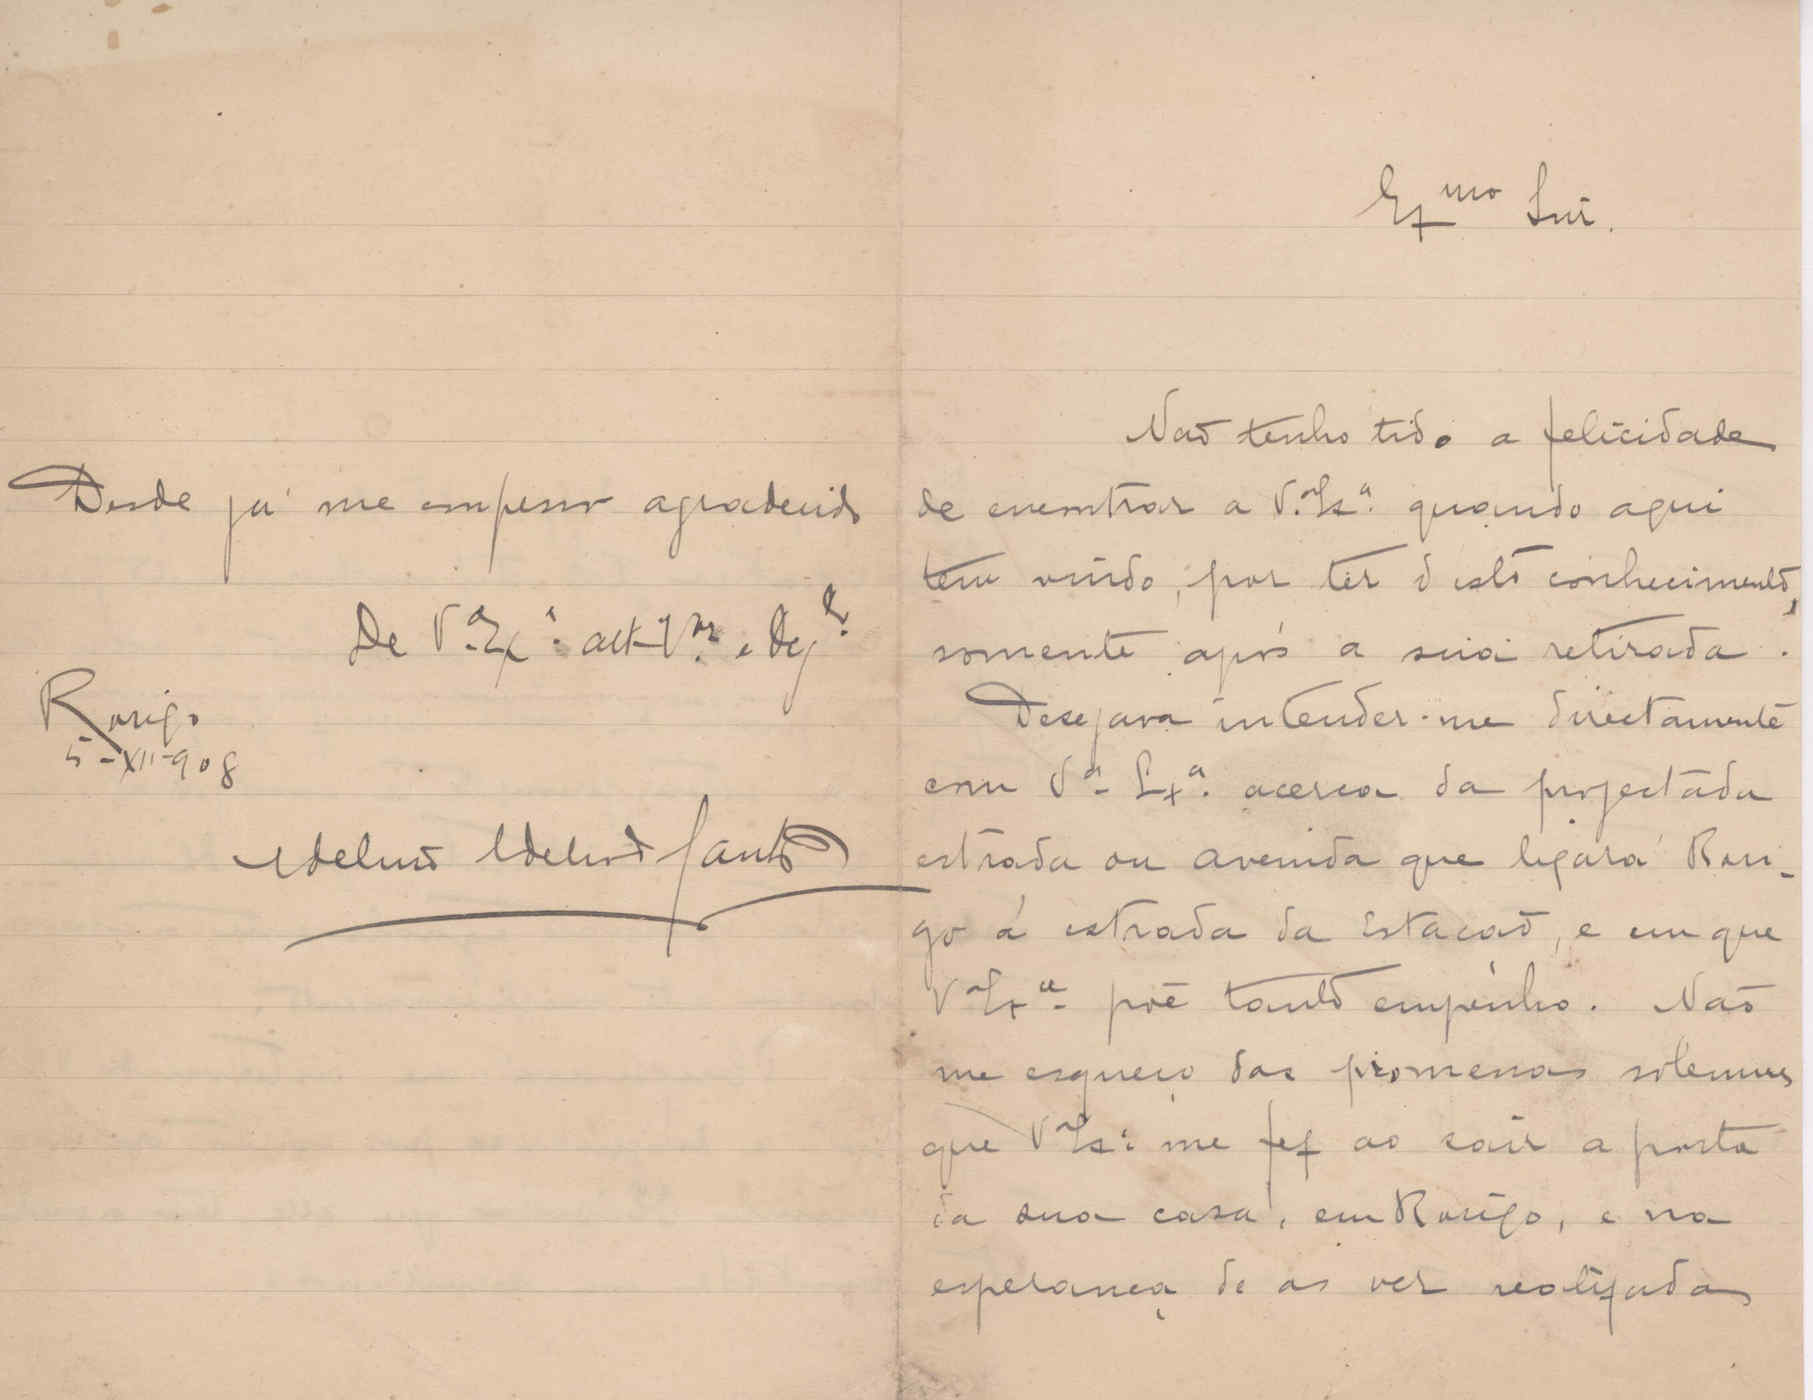 Ex.mo Snr.
Não tenho tido a felicidade
de encontrar a V.ª Ex.ª quando aqui
tem vindo, por ter d'isto conhecimento,
somente após a sua retirada.
Desejava intender-me directamente
com V.ª Ex.ª acerca da projectada
estrada ou avenida que ligará Rori-
go á estrada da Estação, e em que
V.ª Ex.ª põe tanto empenho. Não
me esqueço das promessas solemnes
que V.ª Ex.ª me fez ao sair a porta
da sua casa, em Rorigo, e na
esperança de as ver realizadas
Desde já me confesso agradecido
De V.ª Ex.ª att.º V.or e
Rorigo
5-XII-908
Adelino Adelino Santos